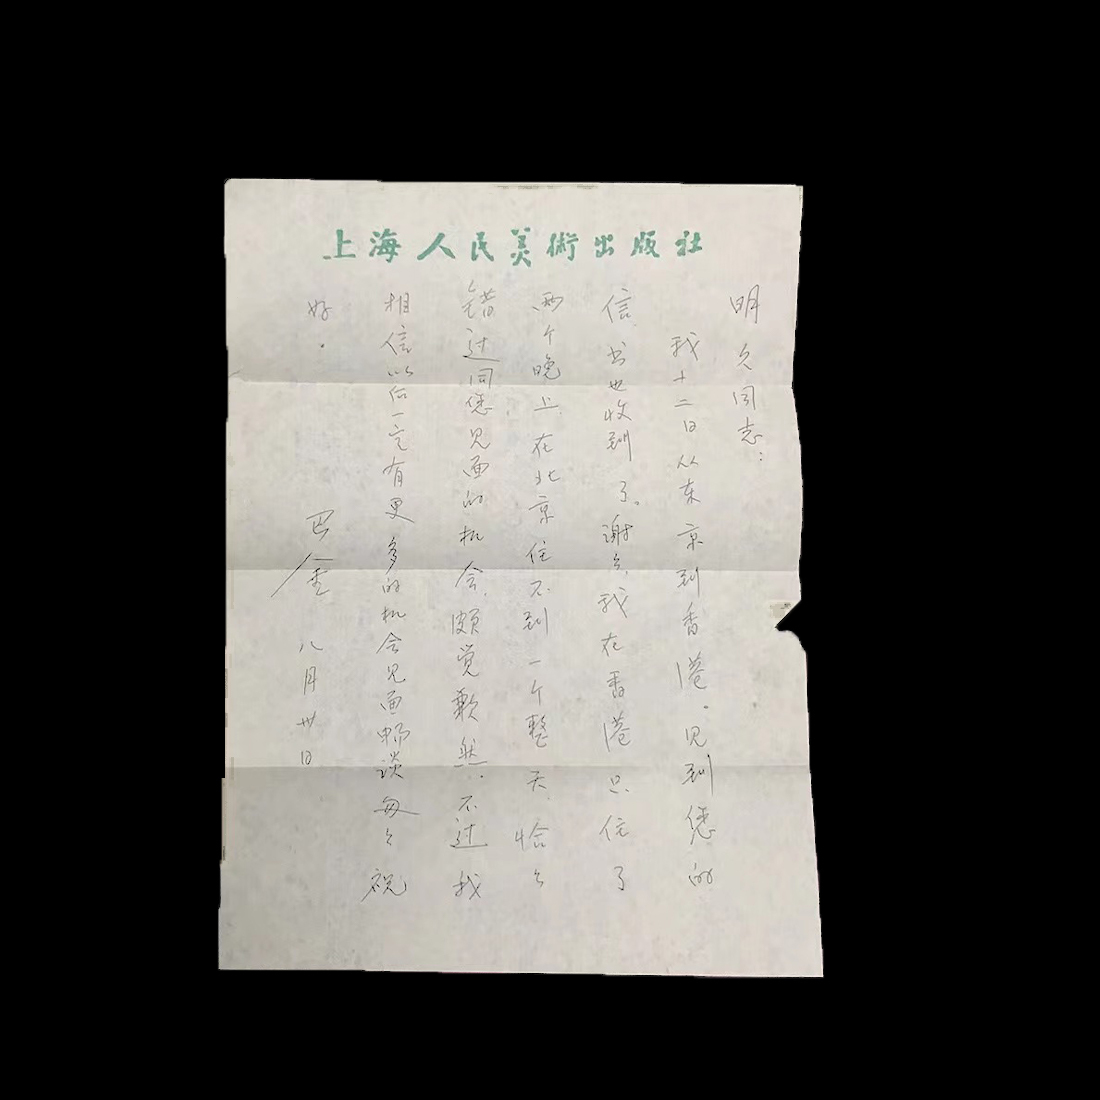 上海人民美術出版社
明久同志：
我十二日从东京到香港。见到您的
信，书也收到了，谢々，我在香港只住了
两个晚上，在北京住不到一个整天，恰々
错过同您见面的机会，颇觉歉然，不过我
相信以后一定有更多的机会见面畅谈，匆々祝
好。
巴金 八月卅日